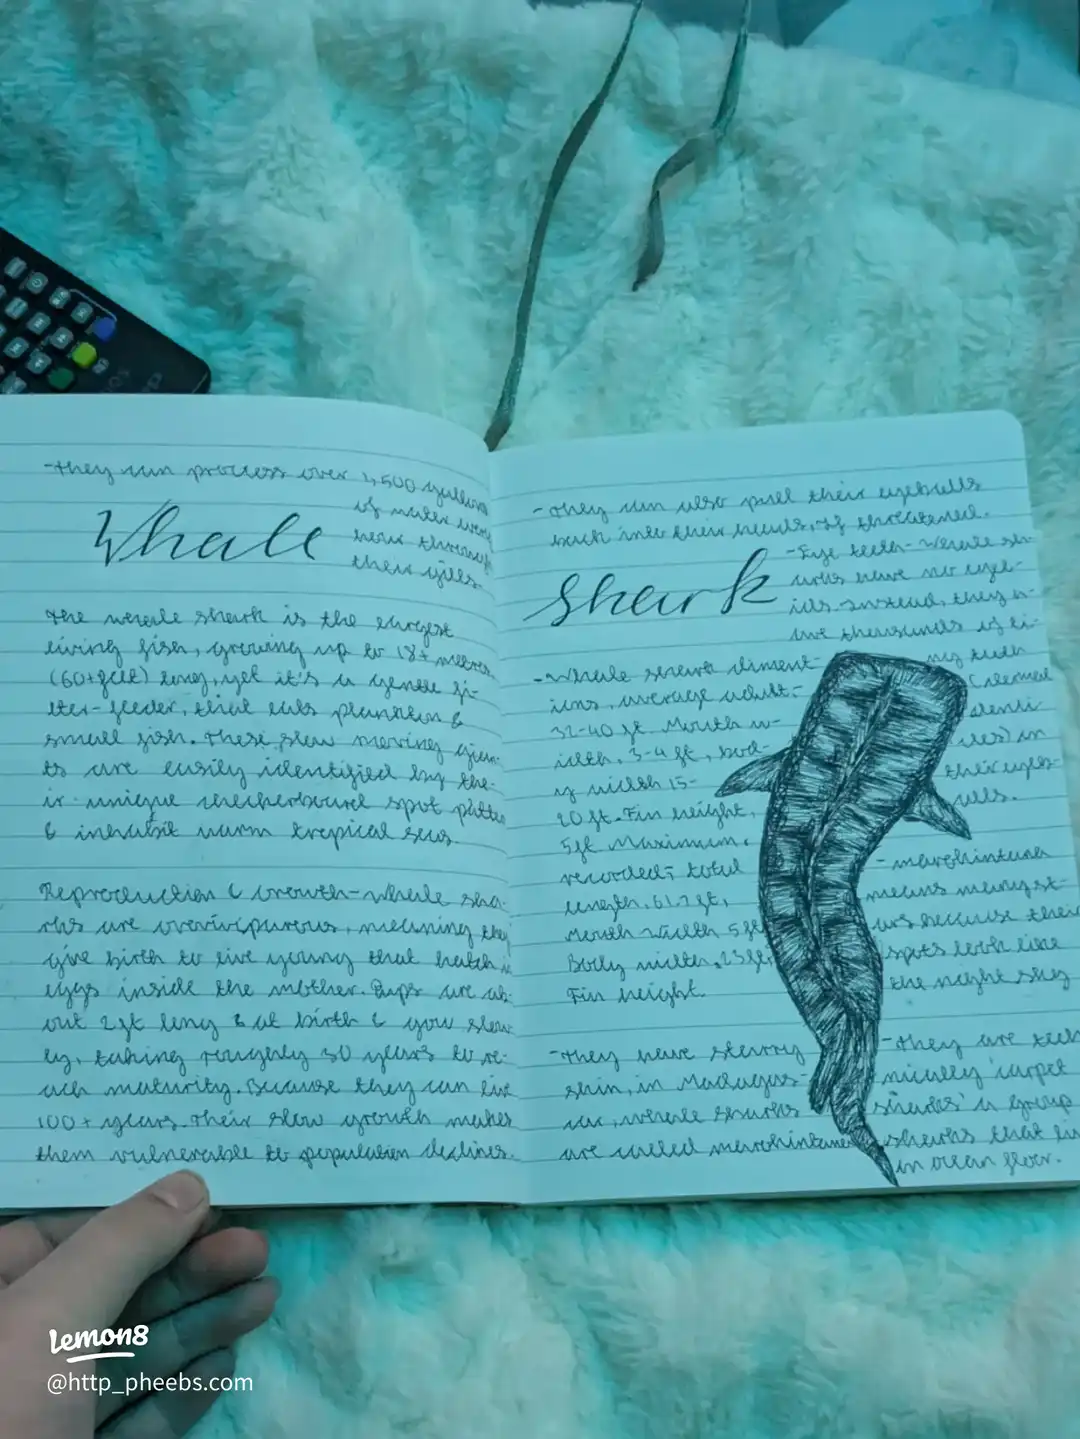 -They can process over 1,500 gallons
of water every
hour through
their gills.
Whale
The whale shark is the largest
living fish, growing up to 18+ meters
(60+feet) long, yet it's a gentle fi-
lter-feeder, that eats plankton &
small fish. These slow moving gian-
ts are easily identified by the-
ir unique checkerboard spot patter
& inhabit warm tropical seas.
Reproduction & Growth-whale sha-
rks are ovovivparous, meaning they
give birth to live young that hatch in
eggs inside the mother. Pups are ab-
out 2ft long & at birth & grow slow
ly, taking roughly 30 years to re-
ach maturity. Because they can live
100+ years. Their slow growth makes
them vulnerable to population declines.
-They can also pull their eyeballs
back into their heads, if threatened.
Shark
-Eye teeth- Whale sh-
arks have no eyel-
ids. Instead, they h-
ave thousands of ti-
ny teeth
(dermal
denti-
cles) in
their eyeb-
alls.
-Whale shark diment-
ions, average adult-
32-40 ft. Mouth w-
idth, 3-4 ft, bod-
y width 15-
20 ft. Fin height,
5ft Maximum.
recorded; total
length, 61.7 ft,
Mouth width 5ft
Body width, 23ft,
Fin height.
-They have starry
skin, in Madagas-
car, whale sharks
are called marokintana
-marokintana
means many st-
ars because their
spots look like
the night sky
-They are tech
nically 'carpet
sharks' a group
sharks that liv
in ocean floor.
Lemon8
@http_pheebs.com